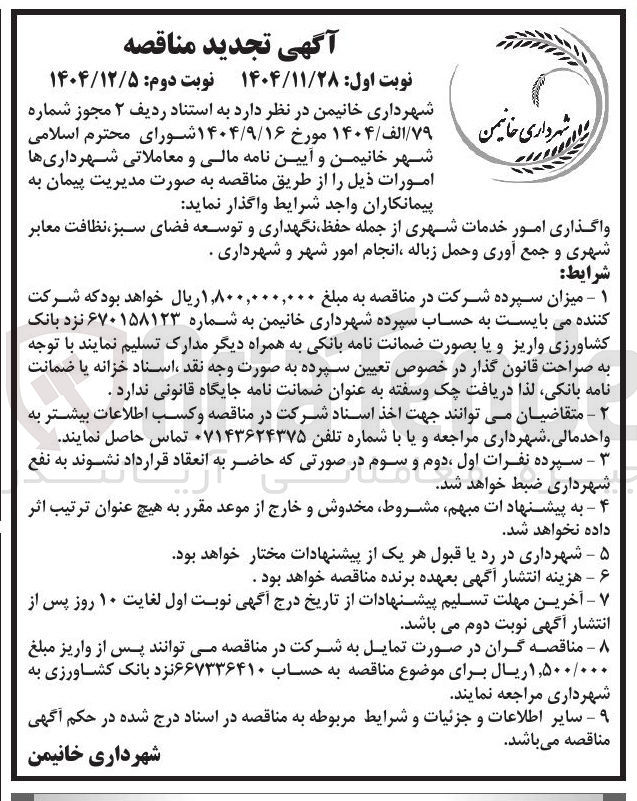 شهرداری خانیمن
آگهی تجدید مناقصه
نوبت اول: ۱۴۰۴/۱۱/۲۸ نوبت دوم: ۱۴۰۴/۱۲/۵
شهرداری خانیمن در نظر دارد به استناد ردیف ۲ مجوز شماره
۷۹/الف/۱۴۰۴ مورخ ۱۴۰۴/۹/۱۶شورای محترم اسلامی
شهر خانیمن و آیین نامه مالی و معاملاتی شهرداری‌ها
امورات ذیل را از طریق مناقصه به صورت مدیریت پیمان به
پیمانکاران واجد شرایط واگذار نماید:
واگذاری امور خدمات شهری از جمله حفظ،نگهداری و توسعه فضای سبز،نظافت معابر
شهری و جمع آوری وحمل زباله ،انجام امور شهر و شهرداری .
شرایط:
۱ - میزان سپرده شرکت در مناقصه به مبلغ ۱,۸۰۰,۰۰۰,۰۰۰ریال خواهد بودکه شرکت
کننده می بایست به حساب سپرده شهرداری خانیمن به شماره ۶۷۰۱۵۸۱۲۳ نزد بانک
کشاورزی واریز و یا بصورت ضمانت نامه بانکی به همراه دیگر مدارک تسلیم نمایند با توجه
به صراحت قانون گذار در خصوص تعیین سپرده به صورت وجه نقد ،اسناد خزانه یا ضمانت
نامه بانکی، لذا دریافت چک وسفته به عنوان ضمانت نامه جایگاه قانونی ندارد .
۲ - متقاضیان می توانند جهت اخذ اسناد شرکت در مناقصه وکسب اطلاعات بیشتر به
واحدمالی.شهرداری مراجعه و یا با شماره تلفن ۰۷۱۴۳۶۲۴۳۷۵ تماس حاصل نمایند.
۳ - سپرده نفرات اول ،دوم و سوم در صورتی که حاضر به انعقاد قرارداد نشوند به نفع
شهرداری ضبط خواهد شد.
۴ - به پیشنهاد ات مبهم، مشروط، مخدوش و خارج از موعد مقرر به هیچ عنوان ترتیب اثر
داده نخواهد شد.
۵ - شهرداری در رد یا قبول هر یک از پیشنهادات مختار خواهد بود.
۶ - هزینه انتشار آگهی بعهده برنده مناقصه خواهد بود .
۷ - آخرین مهلت تسلیم پیشنهادات از تاریخ درج آگهی نوبت اول لغایت ۱۰ روز پس از
انتشار آگهی نوبت دوم می باشد.
۸ - مناقصه گران در صورت تمایل به شرکت در مناقصه می توانند پس از واریز مبلغ
۱,۵۰۰/۰۰۰ریال برای موضوع مناقصه به حساب ۶۶۷۳۳۶۴۱۰نزد بانک کشاورزی به
شهرداری مراجعه نمایند.
۹ - سایر اطلاعات و جزئیات و شرایط مربوطه به مناقصه در اسناد درج شده در حکم آگهی
مناقصه می‌باشد.
شهرداری خانیمن